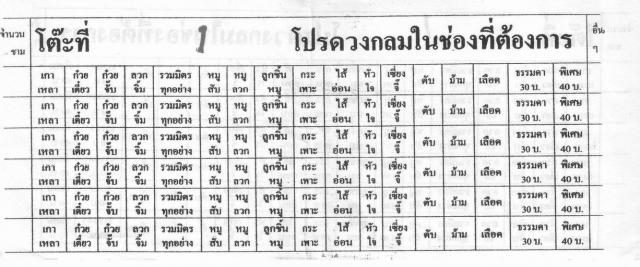 จำนวน โต๊ะที่ 1 โปรดวงกลมในช่องที่ต้องการ อื่น
ชาม ๆ
เกา ก๋วย ก๋วย ลวก รวมมิตร หมู หมู ลูกชิ้น กระ ไส้ หัว เซี่ยง ตับ ม้าม เลือด ธรรมดา พิเศษ
เหลา เตี๋ยว จั๊บ จิ้ม ทุกอย่าง สับ ลวก หมู เพาะ อ่อน ใจ จี๊ 30 บ. 40 บ.
เกา ก๋วย ก๋วย ลวก รวมมิตร หมู หมู ลูกชิ้น กระ ไส้ หัว เซี่ยง ตับ ม้าม เลือด ธรรมดา พิเศษ
เหลา เตี๋ยว จั๊บ จิ้ม ทุกอย่าง สับ ลวก หมู เพาะ อ่อน ใจ จี๊ 30 บ. 40 บ.
เกา ก๋วย ก๋วย ลวก รวมมิตร หมู หมู ลูกชิ้น กระ ไส้ หัว เซี่ยง ตับ ม้าม เลือด ธรรมดา พิเศษ
เหลา เตี๋ยว จั๊บ จิ้ม ทุกอย่าง สับ ลวก หมู เพาะ อ่อน ใจ จี๊ 30 บ. 40 บ.
เกา ก๋วย ก๋วย ลวก รวมมิตร หมู หมู ลูกชิ้น กระ ไส้ หัว เซี่ยง ตับ ม้าม เลือด ธรรมดา พิเศษ
เหลา เตี๋ยว จั๊บ จิ้ม ทุกอย่าง สับ ลวก หมู เพาะ อ่อน ใจ จี๊ 30 บ. 40 บ.
เกา ก๋วย ก๋วย ลวก รวมมิตร หมู หมู ลูกชิ้น กระ ไส้ หัว เซี่ยง ตับ ม้าม เลือด ธรรมดา พิเศษ
เหลา เตี๋ยว จั๊บ จิ้ม ทุกอย่าง สับ ลวก หมู เพาะ อ่อน ใจ จี๊ 30 บ. 40 บ.
เกา ก๋วย ก๋วย ลวก รวมมิตร หมู หมู ลูกชิ้น กระ ไส้ หัว เซี่ยง ตับ ม้าม เลือด ธรรมดา พิเศษ
เหลา เตี๋ยว จั๊บ จิ้ม ทุกอย่าง สับ ลวก หมู เพาะ อ่อน ใจ จี๊ 30 บ. 40 บ.